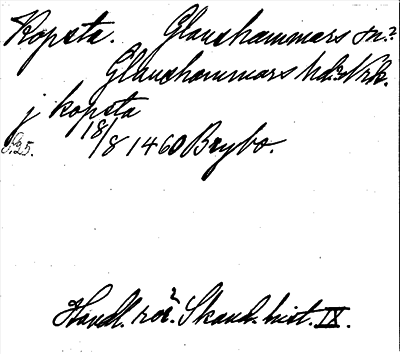 Kopsta. Glanshammars sn?
Glanshammars hd: Nrk.
j kopsta
18/8 1460 Brybo.
S. 25.
Handl. rör? Skand. hist. IX.